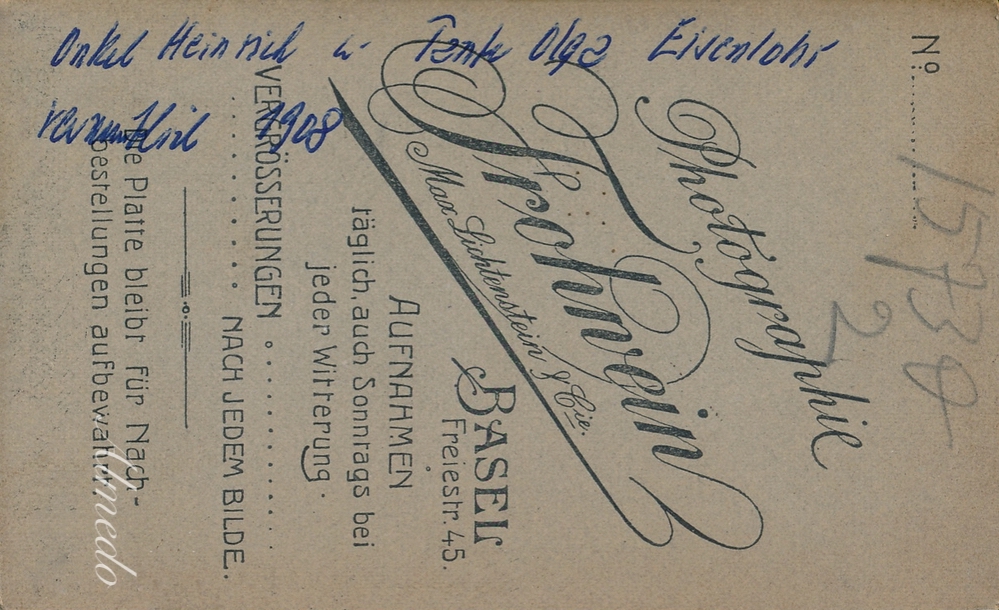 Onkel Heinrich u. Tante Olga Eisenlohr
vermutlich 1908
No
15734
2
Photographie
Frohwein
Max Lichtenstein & Cie.
BASEL
Freiestr. 45.
AUFNAHMEN
täglich, auch Sonntags bei
jeder Witterung.
VERGRÖSSERUNGEN
NACH JEDEM BILDE.
Die Platte bleibt für Nach-
bestellungen aufbewahrt